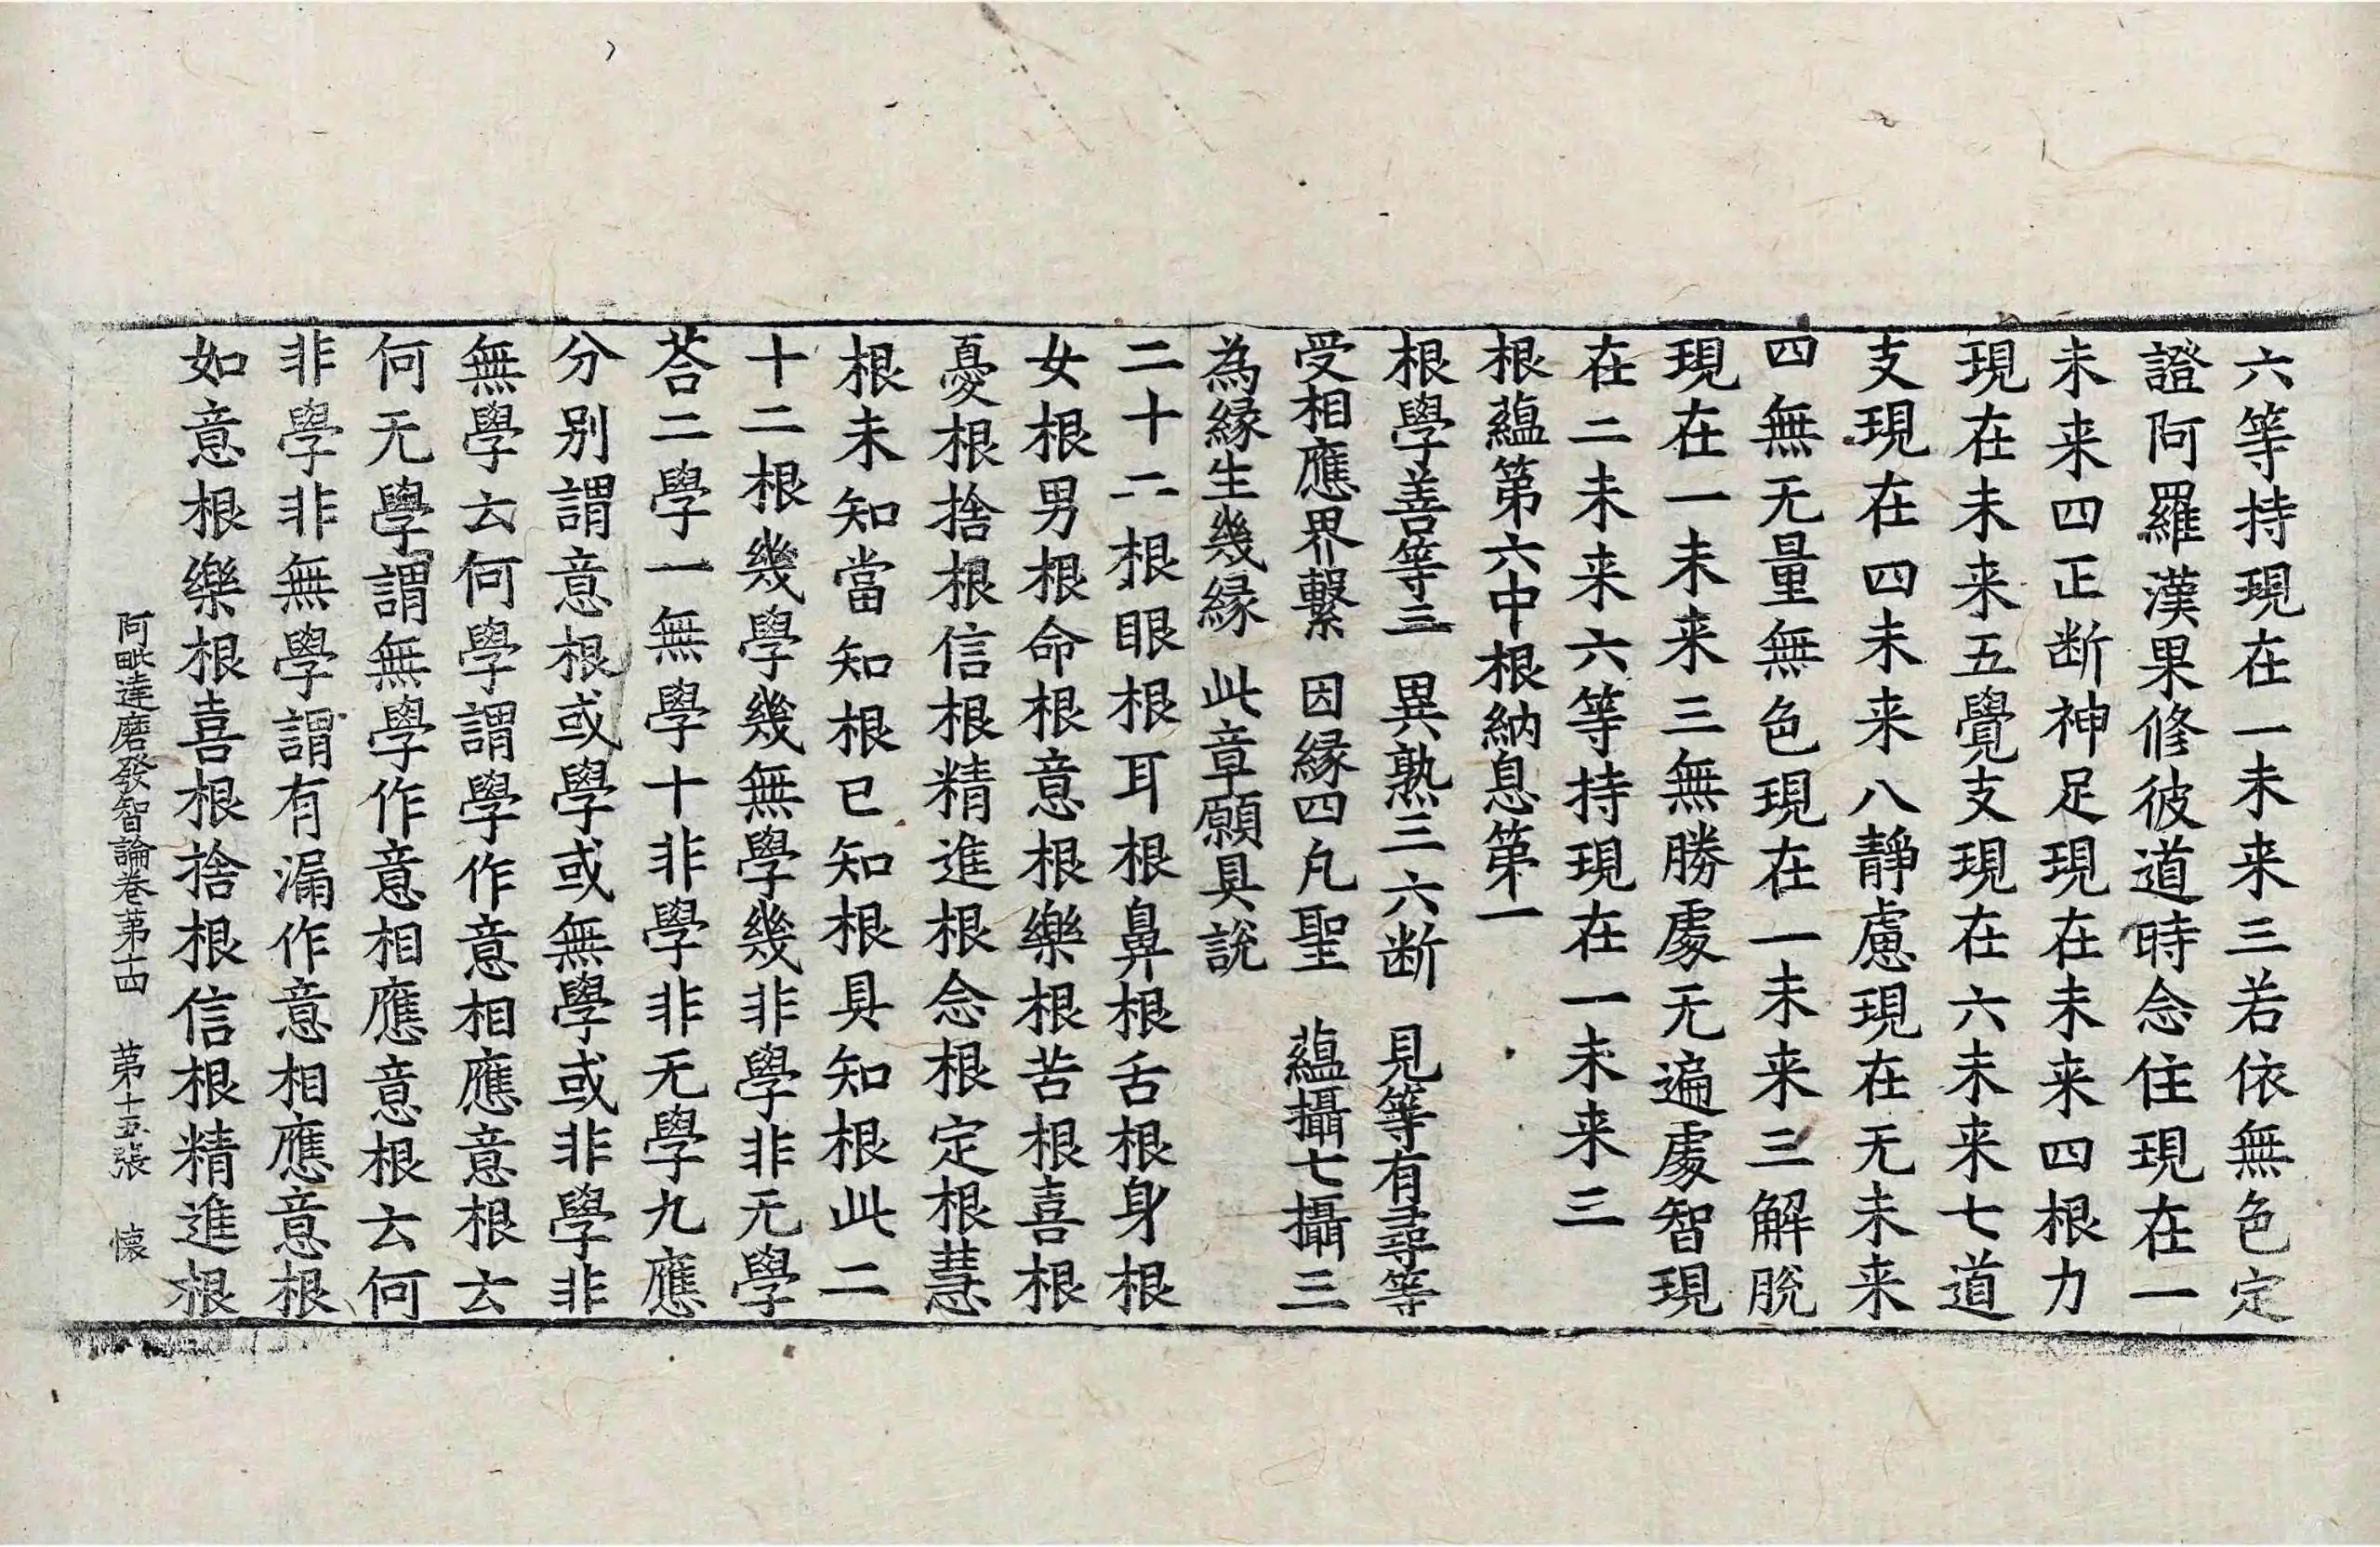 六等持現在一未来三若依無色定
證阿羅漢果修彼道時念住現在一
未来四正断神足現在未来四根力
現在未来五覺支現在六未来七道
支現在四未来八靜慮現在无未来
四無无量無色現在一未来三解脫
現在一未来三無勝處无遍處智現
在二未来六等持現在一未来三
根蘊第六中根納息第一
根學善等三　異熟三六断　見等有尋等
受相應界繫　因縁四凡聖　蘊攝七攝三
為縁生幾縁　此章願具說
二十二根眼根耳根鼻根舌根身根
女根男根命根意根樂根苦根喜根
憂根捨根信根精進根念根定根慧
根未知當知根已知根具知根此二
十二根幾學幾無學幾非學非无學
荅二學一無學十非學非无學九應
分別謂意根或學或無學或非學非
無學云何學謂學作意相應意根云
何无學謂無學作意相應意根云何
非學非無學謂有漏作意相應意根
如意根樂根喜根捨根信根精進根
阿毗達磨發智論卷苐十四　苐十五張　懐